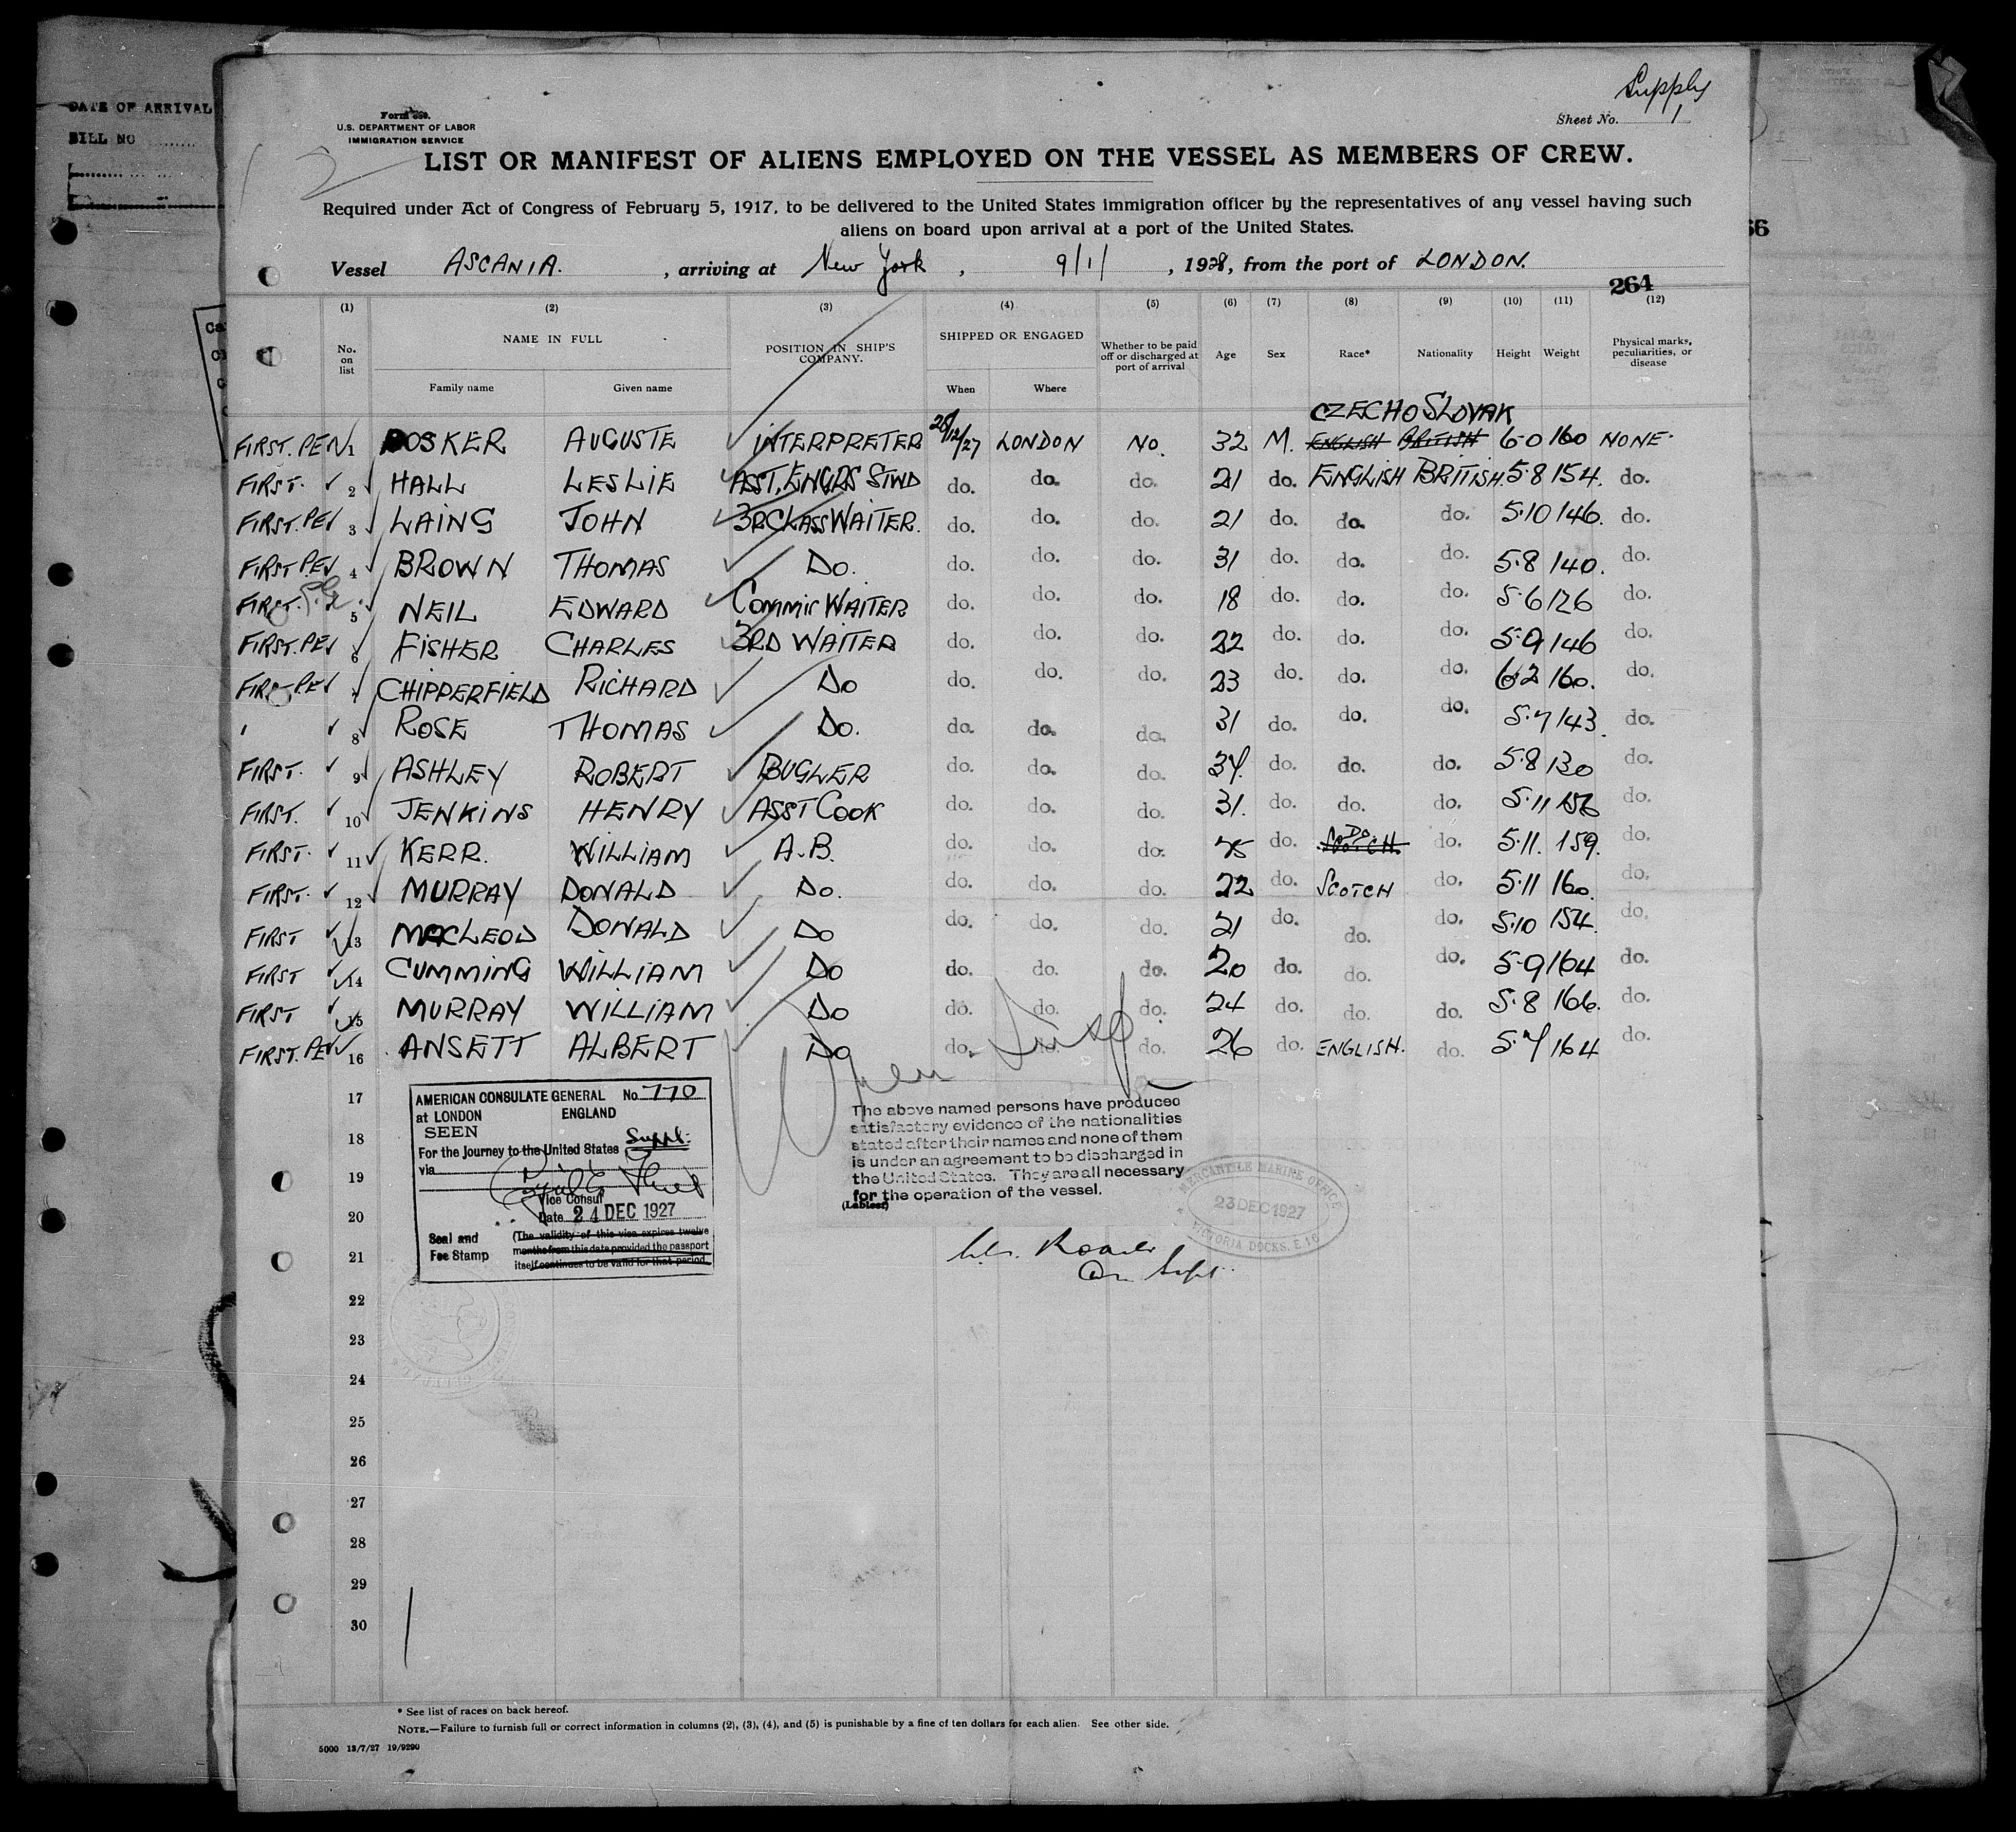 DATE OF ARRIVAL
BILL NO
Supply
Sheet No. 1
U.S. DEPARTMENT OF LABOR
IMMIGRATION SERVICE
LIST OR MANIFEST OF ALIENS EMPLOYED ON THE VESSEL AS MEMBERS OF CREW.
Required under Act of Congress of February 5, 1917, to be delivered to the United States immigration officer by the representatives of any vessel having such
aliens on board upon arrival at a port of the United States.
Vessel ASCANIA. , arriving at New York , 9/1/ , 1928, from the port of LONDON.
264
(1) (2) (3) (4) (5) (6) (7) (8) (9) (10) (11) (12)
No. on list NAME IN FULL POSITION IN SHIP'S COMPANY. SHIPPED OR ENGAGED Whether to be paid off or discharged at port of arrival Age Sex Race* Nationality Height Weight Physical marks, peculiarities, or disease
Family name Given name When Where
CZECHOSLOVAK
FIRST. PEN 1 BOSKER AUGUSTE INTERPRETER 28/12/27 LONDON NO. 32 M. ENGLISH BRITISH 6-0 160 NONE.
FIRST. 2 HALL LESLIE ASST. ENGRS STWD do. do. do. 21 do. ENGLISH BRITISH. 5.8 154. do.
FIRST. PEN 3 LAING JOHN 3RCLASS WAITER. do. do. do. 21 do. do. do. 5.10 146. do.
FIRST PEN 4 BROWN THOMAS Do. do. do. do. 31 do. do. do. 5.8 140. do.
FIRST. 5 NEIL EDWARD Commis WAITER do. do. do. 18 do. do. do. 5.6 126 do.
FIRST. PEN 6 FISHER CHARLES 3RD WAITER do. do. do. 22 do. do. do. 5.9 146 do.
FIRST PEN 7 CHIPPERFIELD RICHARD Do do. do. do. 23 do. do. do. 6.2 160. do.
8 ROSE THOMAS Do. do. do. do. 31 do. do. do. 5.7 143. do.
FIRST. 9 ASHLEY ROBERT BUGLER do. do. do. 34. do. do. do. 5.8 130 do.
FIRST. 10 JENKINS HENRY ASST COOK do. do. do. 31. do. do. do. 5.11 156 do.
FIRST. 11 KERR. WILLIAM A.B. do. do. do. 25 do. SCOTCH. DO. do. 5.11. 159. do.
FIRST. 12 MURRAY DONALD Do. do. do. do. 22 do. SCOTCH do. 5.11 160. do.
FIRST 13 MACLEOD DONALD Do do. do. do. 21 do. do. do. 5.10 154. do.
FIRST 14 CUMMING WILLIAM Do do. do. do. 20 do. do. do. 5.9 164 do.
FIRST 15 MURRAY WILLIAM Do do. do. do. 24 do. do. do. 5.8 166. do.
FIRST. PEN 16 ANSETT ALBERT Do do. do. do. 26 do. ENGLISH. do. 5.7 164 do.
17
18
19
20
21
22
23
24
25
26
27
28
29
30
AMERICAN CONSULATE GENERAL No. 770
at LONDON ENGLAND
SEEN
For the journey to the United States Suppl.
via
Vice Consul
Date 24 DEC 1927
Seal and Fee Stamp
(The validity of this visa expires twelve
months from this date provided the passport
itself continues to be valid for that period.
The above named persons have produced
satisfactory evidence of the nationalities
stated after their names and none of them
is under an agreement to be discharged in
the United States. They are all necessary
for the operation of the vessel.
MERCANTILE MARINE OFFICE
23 DEC 1927
VICTORIA DOCKS. E.16
* See list of races on back hereof.
NOTE.—Failure to furnish full or correct information in columns (2), (3), (4), and (5) is punishable by a fine of ten dollars for each alien. See other side.
5000 13/7/27 19/9290